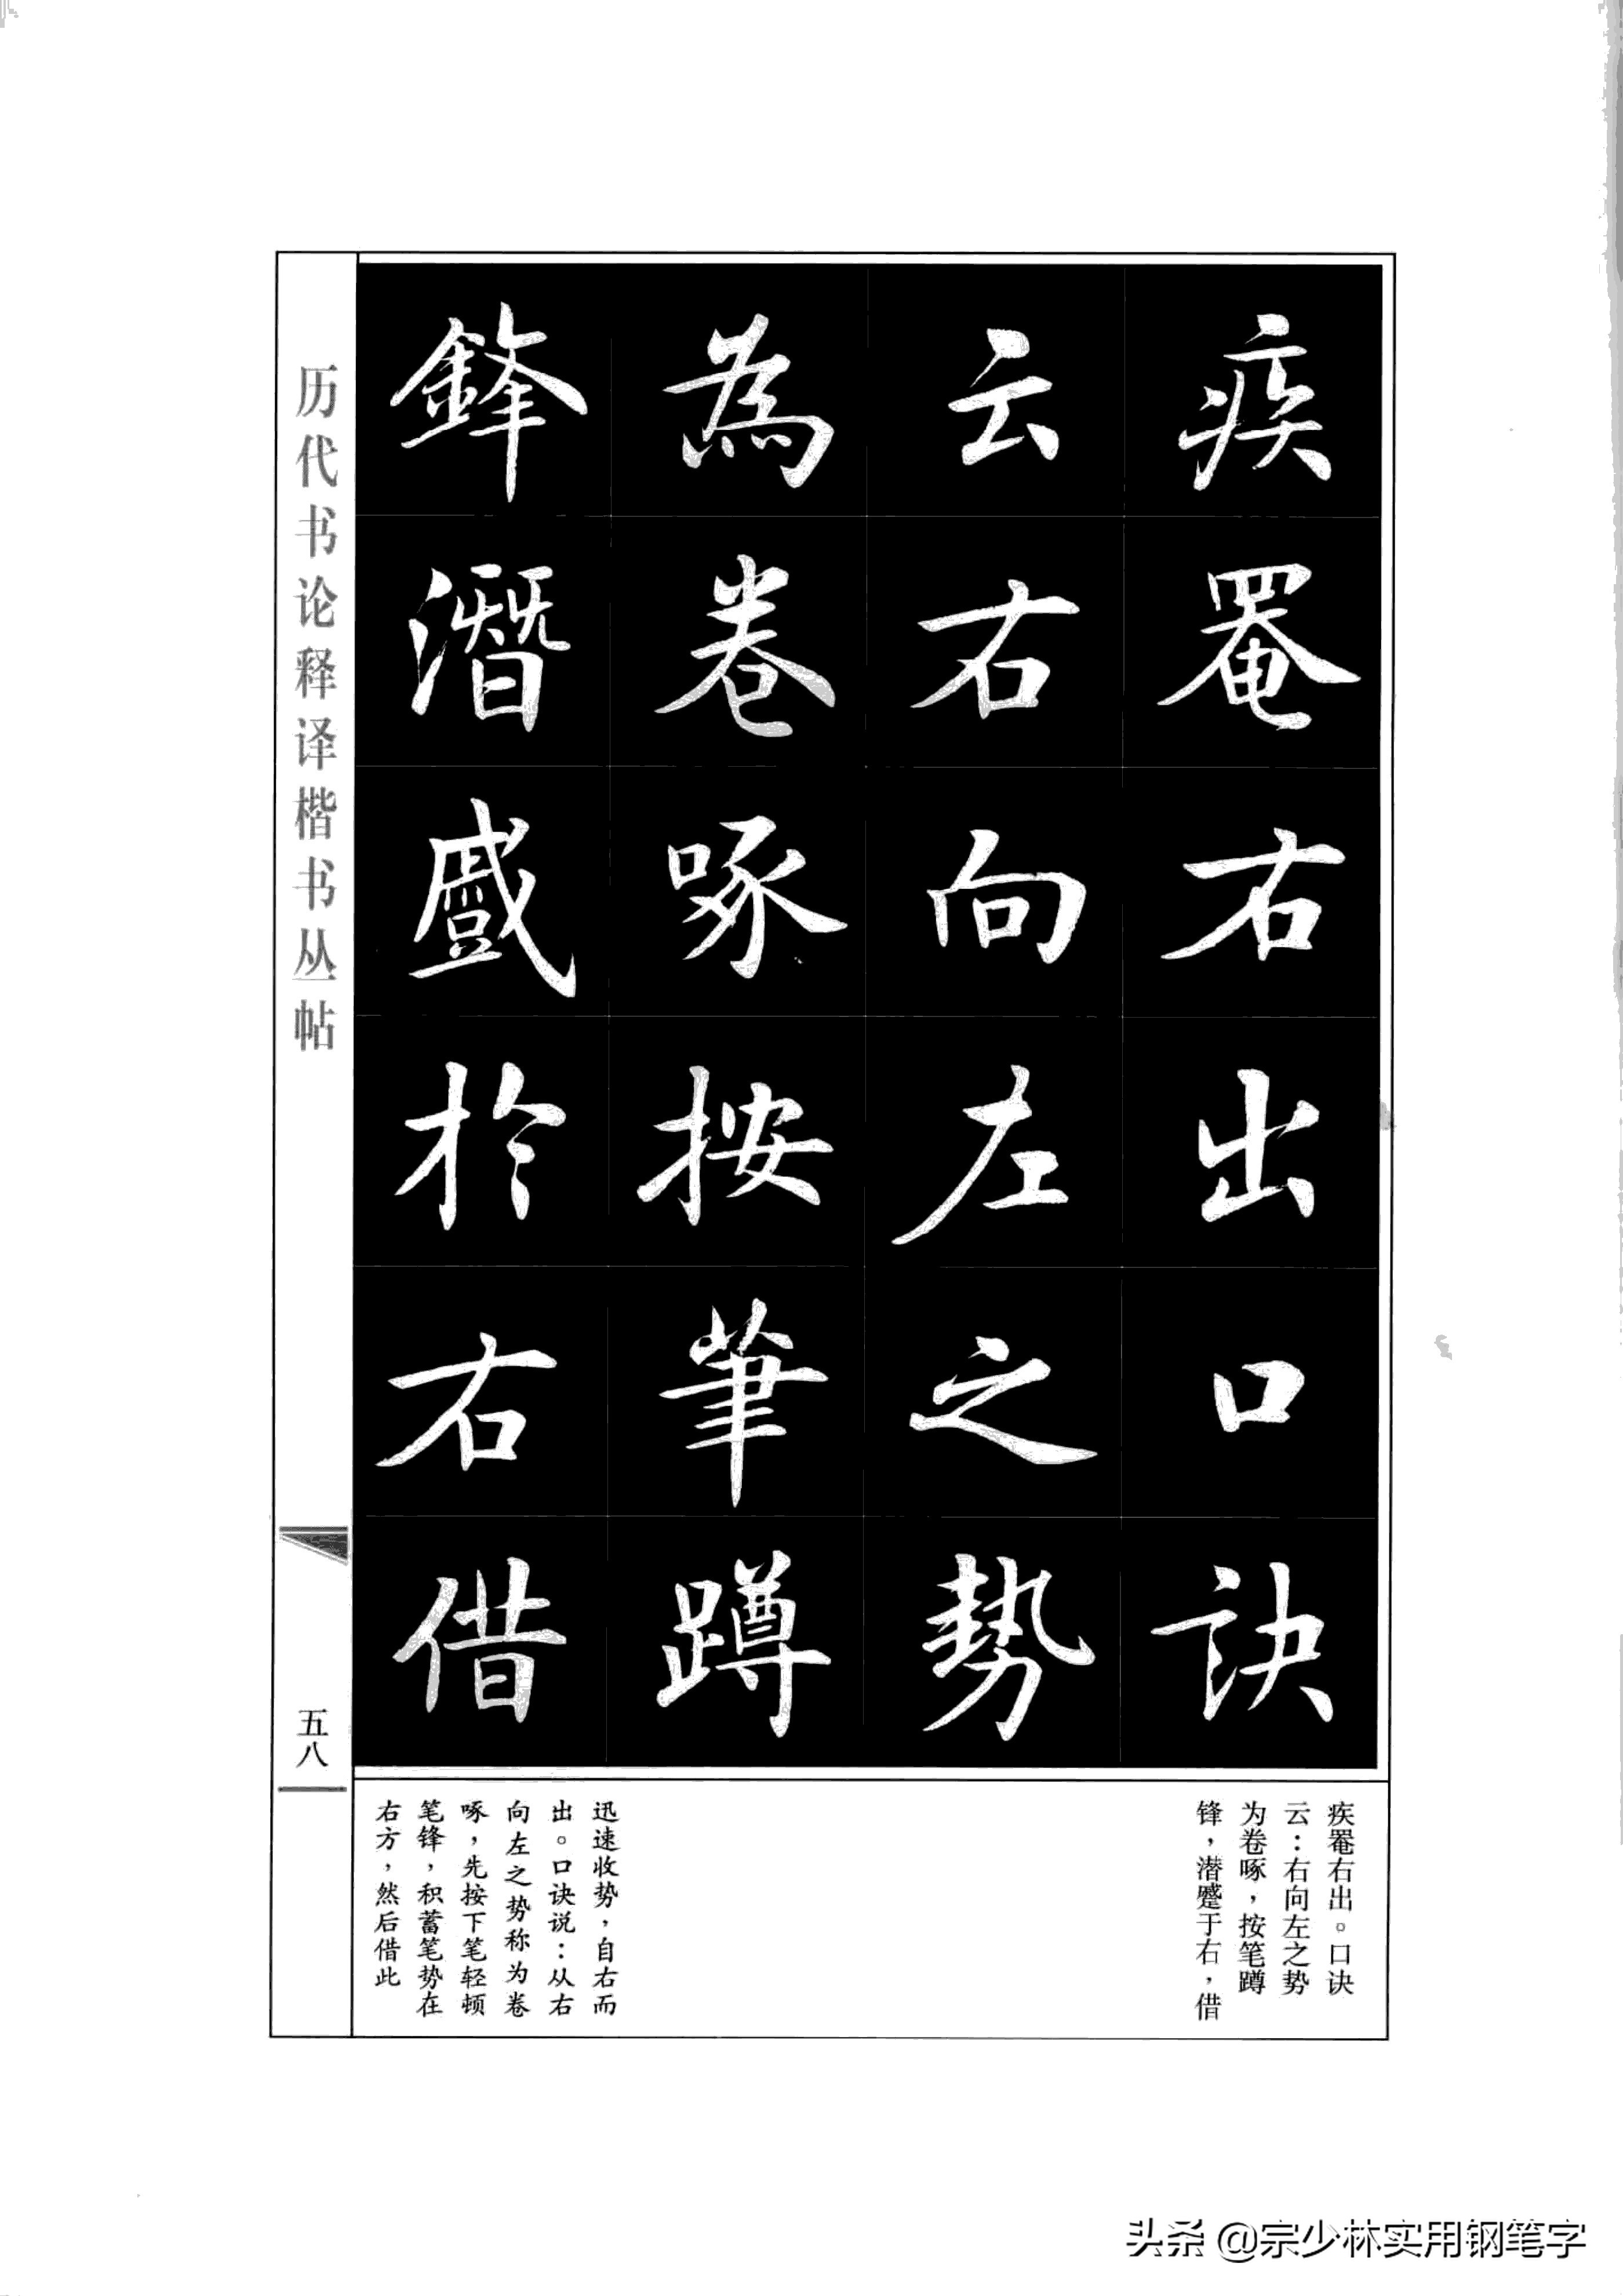 疾罨右出口訣
云右向左之勢
為卷啄按筆蹲
鋒潛蹙於右借
历代书论释译楷书丛帖
五八
疾罨右出。口诀
云：右向左之势
为卷啄，按笔蹲
锋，潜蹙于右，借
迅速收势，自右而
出。口诀说：从右
向左之势称为卷
啄，先按下笔轻顿
笔锋，积蓄笔势在
右方，然后借此
头条 @宗少林实用钢笔字